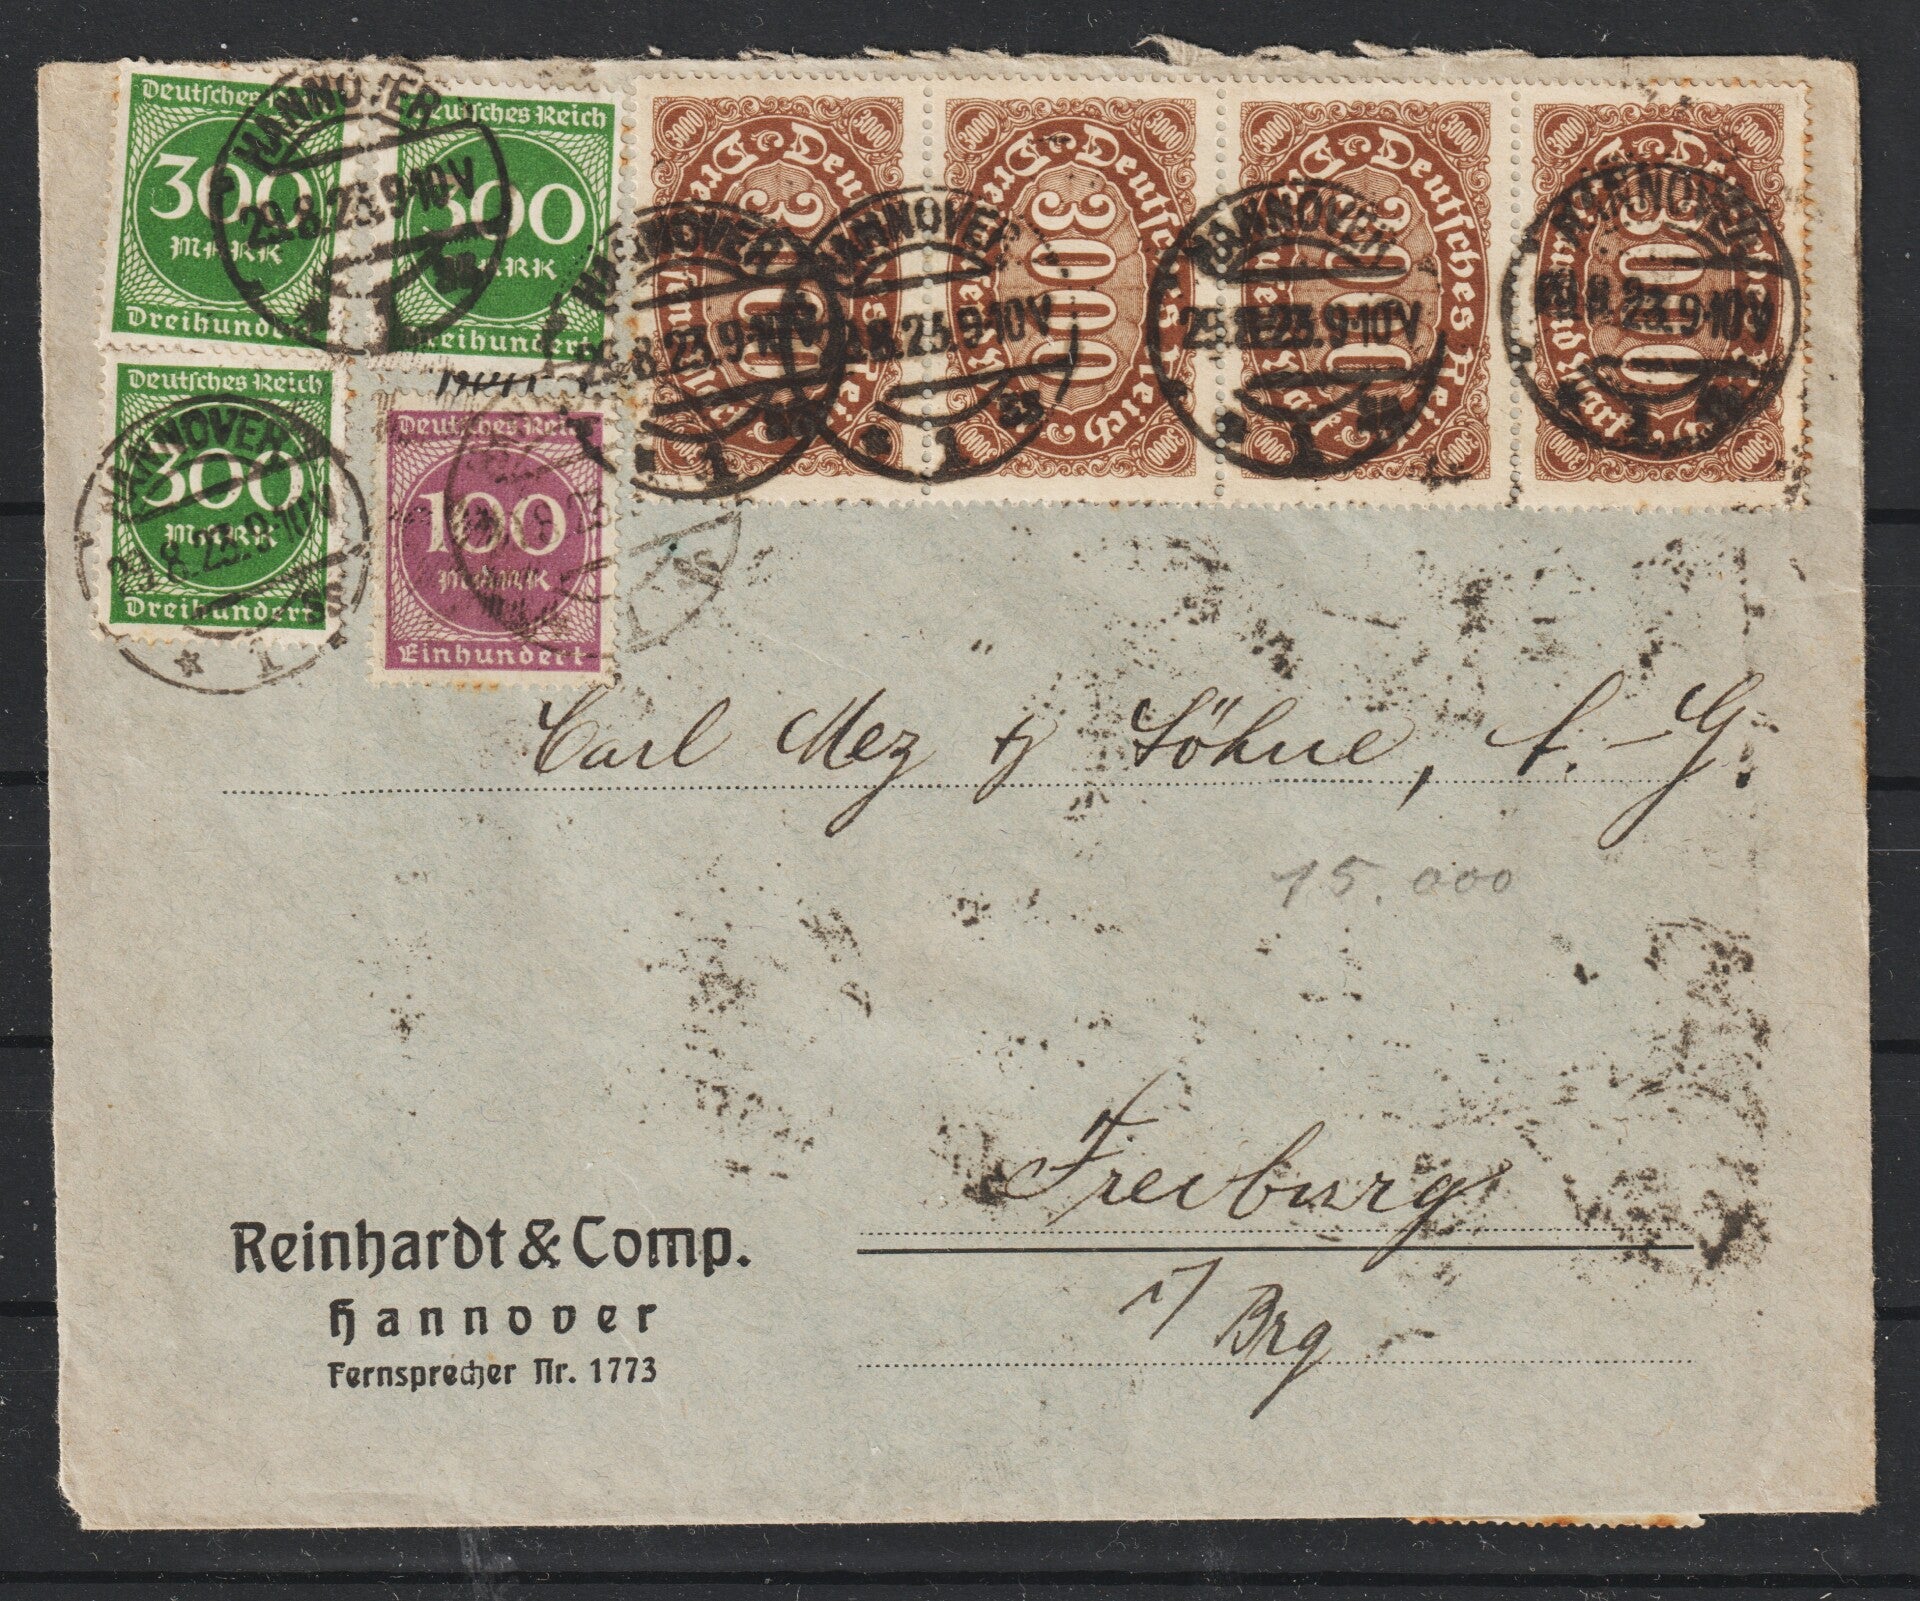 Deutsches
300
MARK
Dreihundert
HANNOVER
29.8.23.9-10V
1
Deutsches Reich
300
MARK
Dreihundert
Deutsches Reich
300
MARK
Dreihundert
HANNOVER
29.8.23.9-10V
* 1
Deutsches Reich
100
MARK
Einhundert
Deutsches Reich
3000
HANNOVER
29.8.23.9-10V
* 1
Deutsches Reich
3000
HANNOVER
8.23.9-10V
* 1 S8
Deutsches Reich
3000
HANNOVER
29.8.23.9-10V
* 1
Deutsches Reich
3000
HANNOVER
29.8.23.9-10V
Carl Mez & Söhne, A.-G.
15.000
Freiburg
i/ Brg
Reinhardt & Comp.
Hannover
Fernsprecher Nr. 1773